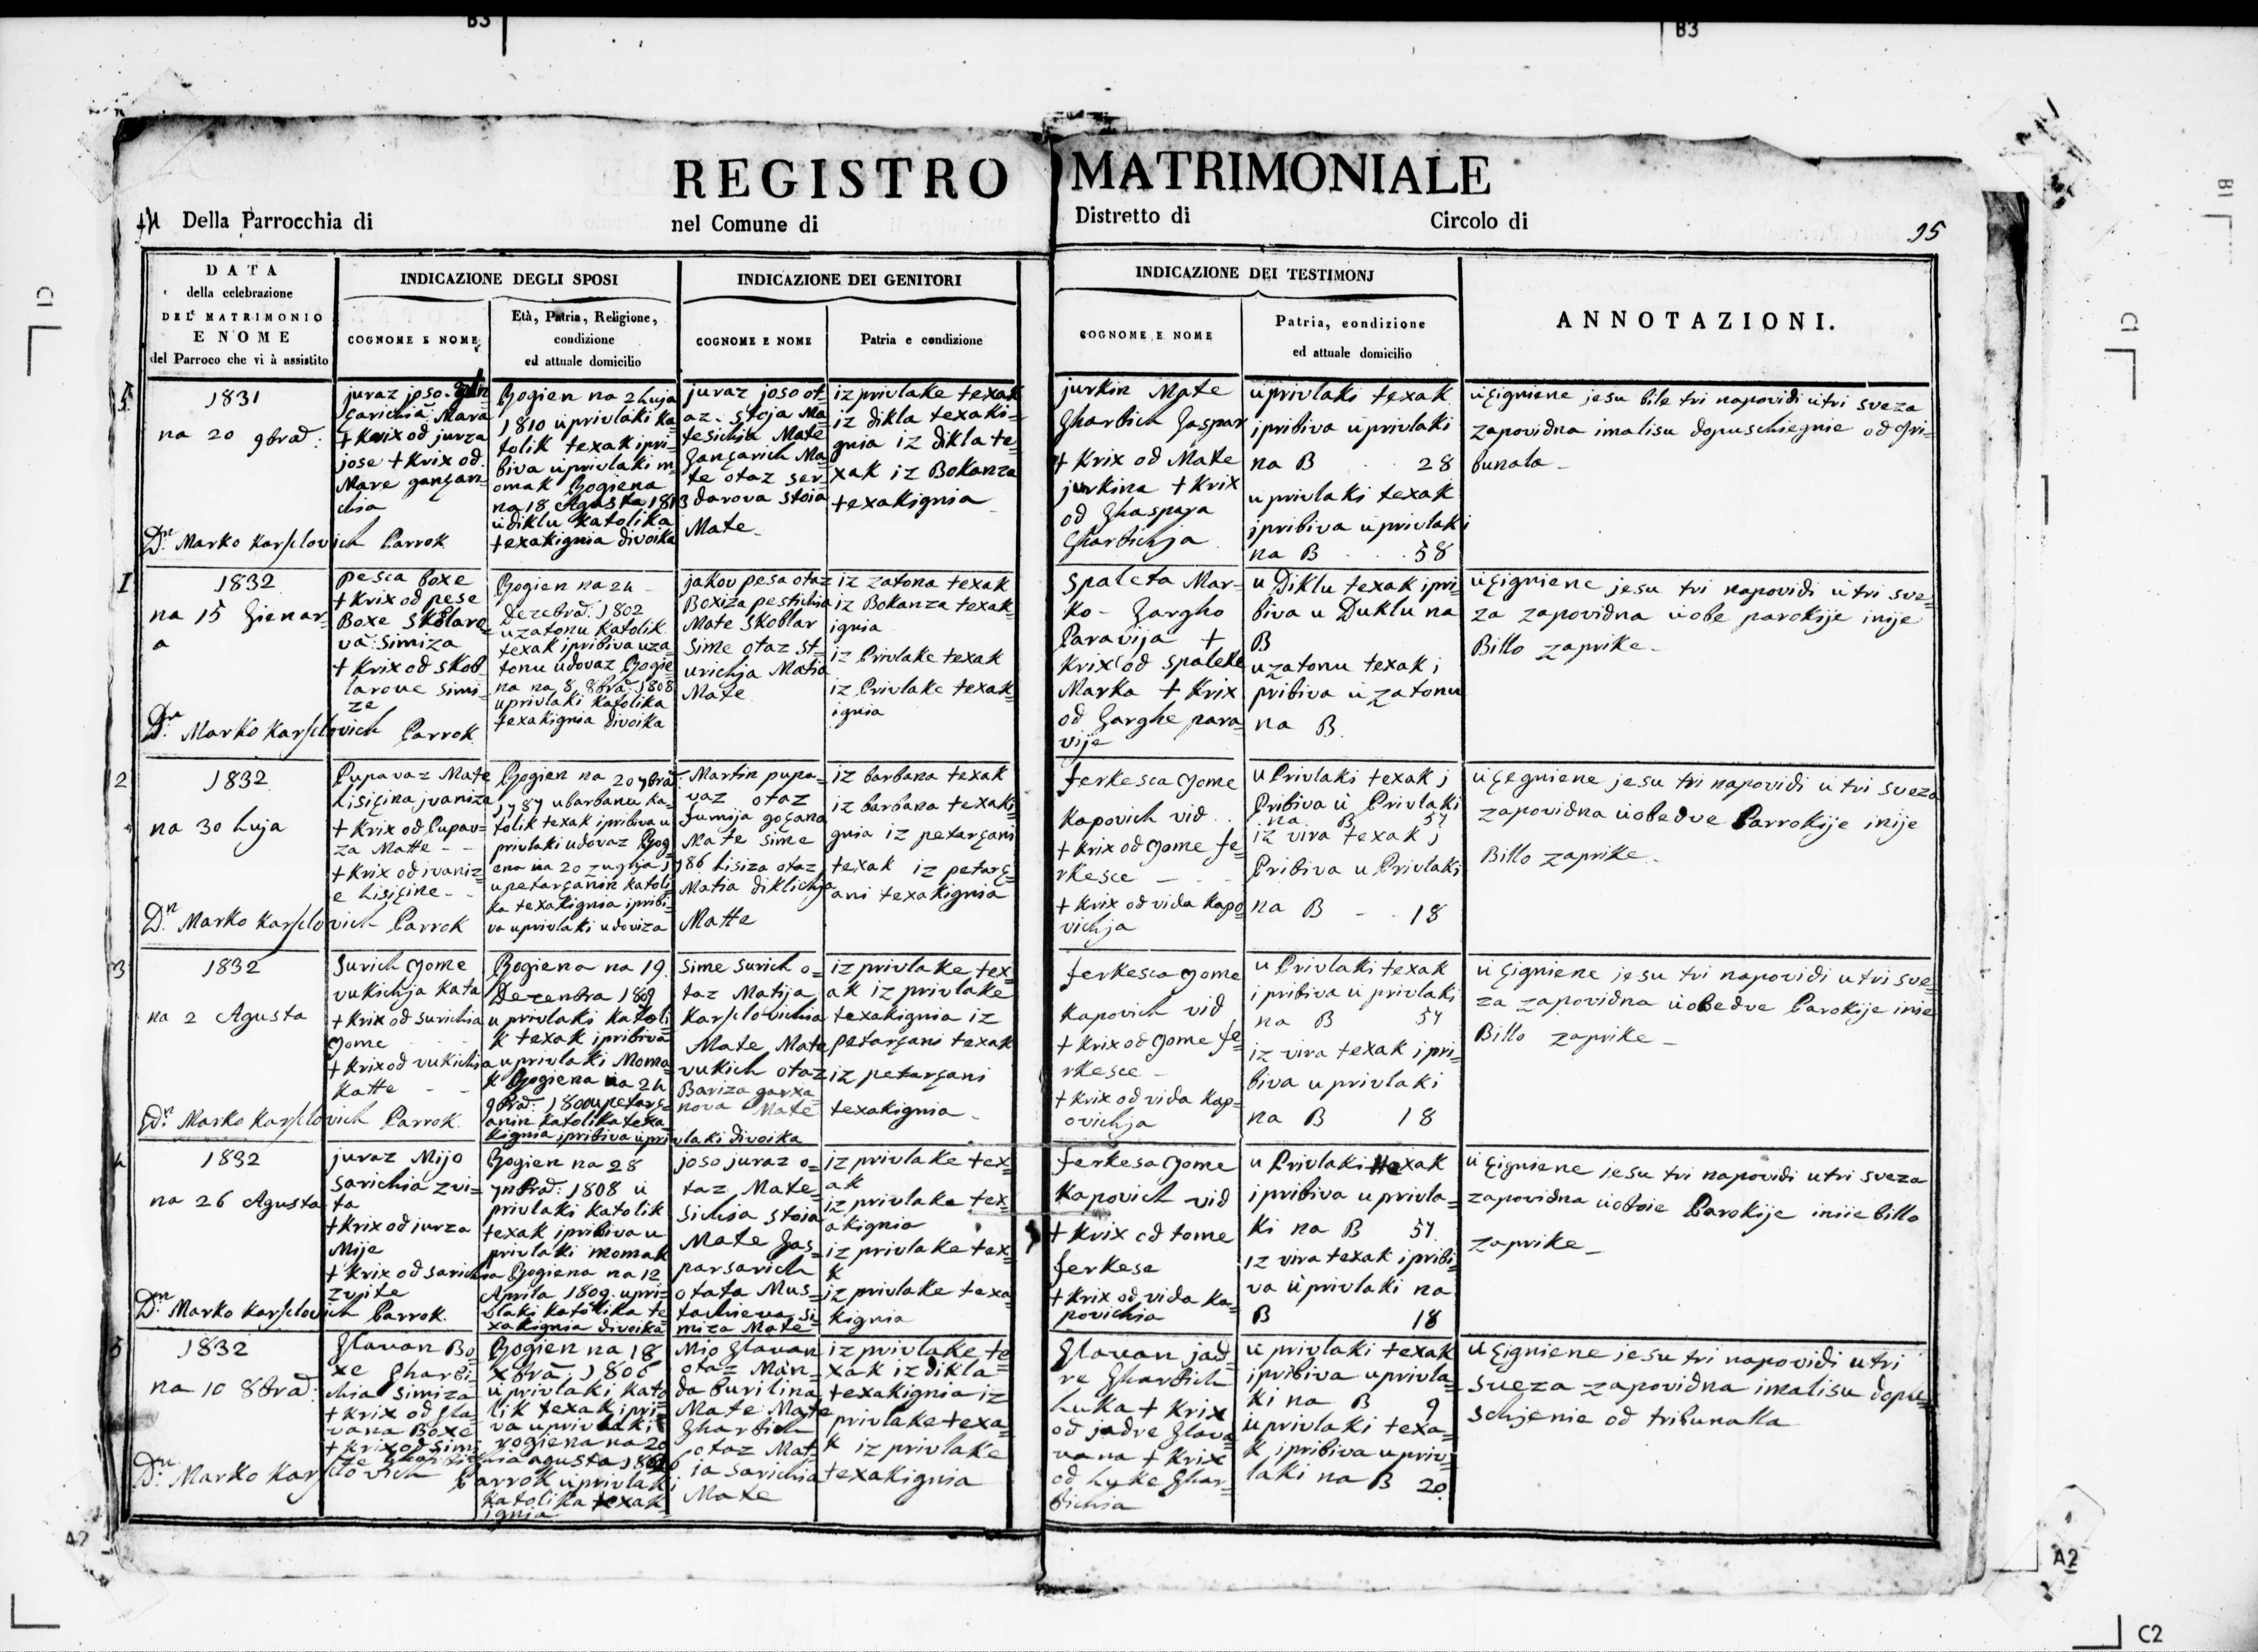 B3
B3
REGISTRO MATRIMONIALE
Della Parrocchia di nel Comune di Distretto di Circolo di
95
DATA
della celebrazione
DEL MATRIMONIO
E NOME
del Parroco che vi à assistito
INDICAZIONE DEGLI SPOSI
COGNOME E NOME
Età, Patria, Religione,
condizione
ed attuale domicilio
INDICAZIONE DEI GENITORI
COGNOME E NOME
Patria e condizione
INDICAZIONE DEI TESTIMONJ
COGNOME E NOME
Patria, condizione
ed attuale domicilio
ANNOTAZIONI.
5
1831
na 20 9brad:
Dn: Marko Karslovich Parrok
juraz joso
garichia Mara
+ Krix od jurza
jose + Krix od
Mare gançari-
chia
Rogien na 2 luja
1810 u privlaki ka-
tolik texak ipri-
biva u privlaki m-
omak Rogiena
na 18 Agusta 1813
u diklu Katolika
texakignia divoika
juraz joso ot-
az stoja Ma-
tesichia Mate
gançarich Ma-
te otaz ser-
darova stoia
Mate
iz privlake texak
iz dikla texaki-
gnia iz dikla te-
xak iz Bokanza
texakignia
jurkin Mate
Gharbich Gaspar
+ Krix od Mate
jurkina + Krix
od Ghaspara
Gharbichja
u privlaki texak
i pribiva u privlaki
na B 28
u privlaki texak
i pribiva u privlaki
na B 58
uçigniene jesu bile tri napovidi u tri sveza
zapovidna imalisu dopuschiegnie od Tri-
bunala
1
1832
na 15 Gienar-
a
Dn: Marko Karslovich Parrok
pesca boxe
+ Krix od pese
Boxe Skòlaro-
va Simiza
+ Krix od Skob
larove simi-
ze
Rogien na 24
Dezebrad: 1802
u zatonu Katolik
texak ipribiva uza-
tonu udovaz Rogie
na na 8 8brad: 1808
u privlaki Katolika
texakignia divoika
jakov pesa otaz
Boxiza pestichia
Mate Skoblar
Sime otaz st-
urichja Matia
Mate
iz zatona texak
iz Bokanza texak-
ignia
iz Privlake texak
iz Privlake texak-
ignia
Spaleta Mar-
ko Gargho
Paravija +
Krix od Spalete
Marka + Krix
od Garghe para-
vije
u Diklu texak ipri-
biva u Duklu na
B
u zatonu texak i
pribiva u zatonu
na B
uçigniene jesu tri napovidi u tri sve-
za zapovidna u obe parokije inije
Billo zaprike
2
1832
na 30 Luja
Dn: Marko Karslovich Parrok
Pupavaz Mate
Lisiçina jvaniza
+ Krix od Pupav-
za Matte
+ Krix od ivaniz-
e Lisiçine
Rogien na 20 9brad
1787 u barbanu ka-
tolik texak ipribiva u
privlaki udovaz Rog-
ena na 20 zugnia 1
u petarçanin katoli-
ka texakignia ipribi-
va u privlaki udoviza
Martin pupa-
vaz otaz
fumija goçana
Mate Sime
786 Lisiza otaz
Matia diklichja
Matte
iz barbana texak
iz barbana texaki-
gnia iz petarçani
texak iz petarç-
ani texakignia
Ferkesca Gome
Kapovich vid
+ Krix od Gome fe-
rkesce
+ Krix od vida Kapo
vichja
u Privlaki texak i
Pribiva u Privlaki
na B 57
iz vira texak i
Pribiva u Privlaki
na B 18
uçegniene jesu tri napovidi u tri sveza
zapovidna u obedve Parrokije inije
Billo zaprike
3
1832
na 2 Agusta
Dn: Marko Karslovich Parrok
Surich Gome
vukichja kata
+ Krix od surichia
Gome
+ Krix od vukichia
Katte
Rogiena na 19
Dezenbra 1809
u privlaki Katoli
k texak ipribiva
u privlaki Moma
k Rogiena na 24
9brad: 1800 u petarç-
anin Katolika texa
kignia ipribiva u privlaki divoika
Sime Surich o-
taz Matija
Karslovichia
Mate Mate
vukich otaz
Bariza garxa-
nova Mate
iz privlake tex-
ak iz privlake
texakignia iz
petarçani texak
iz petarçani
texakignia
Ferkesca Gome
Kapovich vid
+ Krix od Gome fe-
rkesce
+ Krix od vida Kap-
ovichja
u Privlaki texak
i pribiva u privlaki
na B 57
iz vira texak i pri-
biva u privlaki
na B 18
uçigniene jesu tri napovidi u tri sve-
za zapovidna u obedve Parokije inie
Billo zaprike
4
1832
na 26 Agusta
Dn: Marko Karslovich Parrok.
juraz Mijo
sarichia zvi-
ta
+ Krix od jurza
Mije
+ Krix od sarichia
zvite
Rogien na 28
7nbrad: 1808 u
privlaki Katolik
texak ipribiva u
privlaki momak
Rogiena na 12
Aprila 1809. u pri-
vlaki Katolika te
xakignia divoika
joso juraz o-
taz Mate-
sichia stoia
Mate Gas-
parsarich
otata Mus-
tachieva si-
miza Mate
iz privlake tex-
ak
iz privlake tex-
akignia
iz privlake tex-
k
iz privlake texa-
kignia
Ferkesa Gome
Kapovich vid
+ Krix od tome
ferkese
+ Krix od vida ka-
povichia
u Privlaki texak
i pribiva u privla-
ki na B 57
iz vira texak i pribi-
va u privlaki na
B 18
uçigniene jesu tri napovidi u tri sveza
zapovidna u oboie Parokije iniie billo
zaprike
5
1832
na 10 8brad:
Dn: Marko Karslovich Parrok
Glavan Bo-
xe Gharbi-
chia Simiza
+ Krix od Gla-
vana Boxe
+ Krix od simi
Rogien na 18
Xbra, 1806
u privlaki Kato
lik texak ipri-
va u privlaki
rogiena na 20
agusta
u privlaki
Katolika texak
ignia
Mio Glavan
otaz Man-
da Burilina
Mate Mate
Gharbich
otaz Mat-
ia sarichia
Mate
iz privlake te
xak iz dikla-
texakignia iz
privlake texa-
k iz privlake
texakignia
Glavan jad-
re Gharbich
Luka + Krix
od jadre Glava-
vana + Krix
od Luke Ghar-
bichia
u privlaki texak
i pribiva u privla-
ki na B 9
u privlaki texa-
k i pribiva u priv-
laki na B 20
uçigniene jesu tri napovidi u tri
sveza zapovidna imalisu dopu-
schjenie od tribunalla
A2
A2
C1
C1
B1
C2